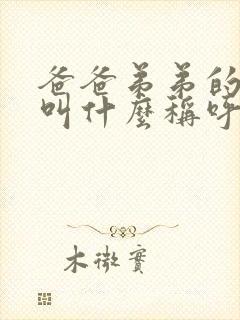 爸爸弟弟的
叫什麼稱呼
木微實